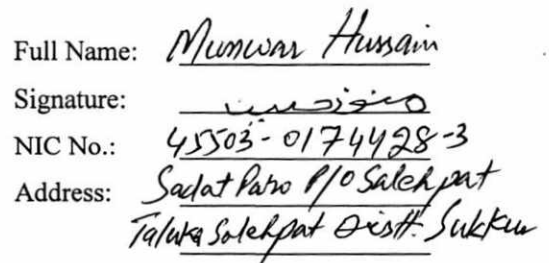 Full Name: Munwar Hussain
Signature: منور حسین
NIC No.: 45503-0174428-3
Address: Sadat Paro P/O Salehpat
Taluka Salehpat Distt. Sukkur